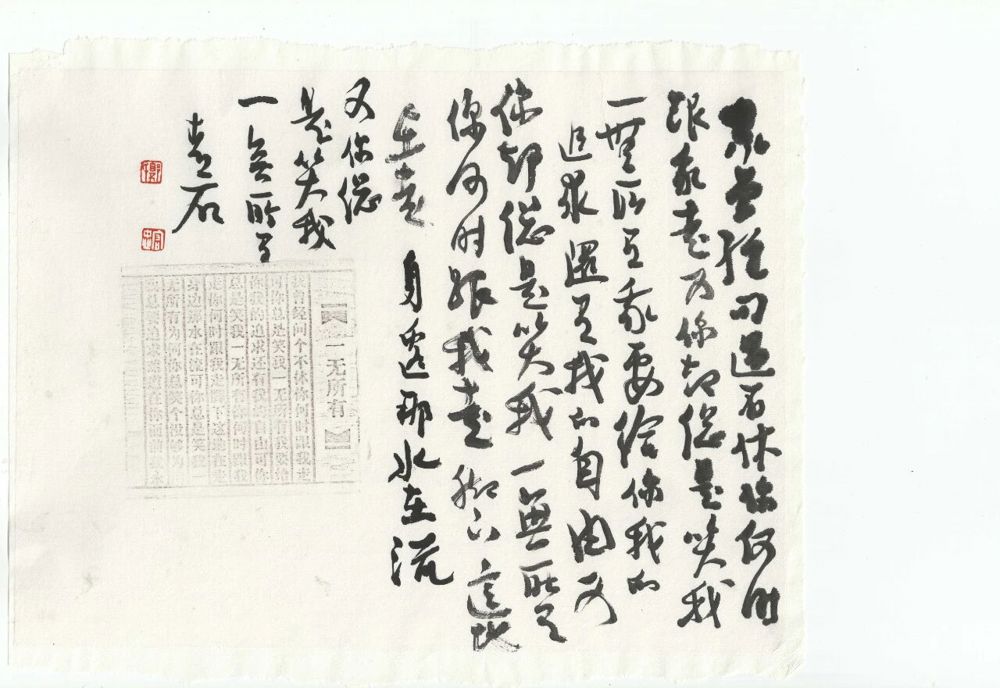 我曾經问過不休你何时
跟我走可你却總是笑我
一無所有我要给你我的
追求還有我的自由可
你却總是笑我一無所有
你何时跟我走脚下這地
在走身邊那水在流
可你總
是笑我
一無所有
【一无所有】
我曾经问个不休你何时跟我走
可你总是笑我一无所有我要给
你我的追求还有我的自由可你
总是笑我一无所有你何时跟我
走你何时跟我走脚下这地在走
身边那水在流可你总是笑我
无所有为何你总笑个没够为
何总要追求难道在你面前我永